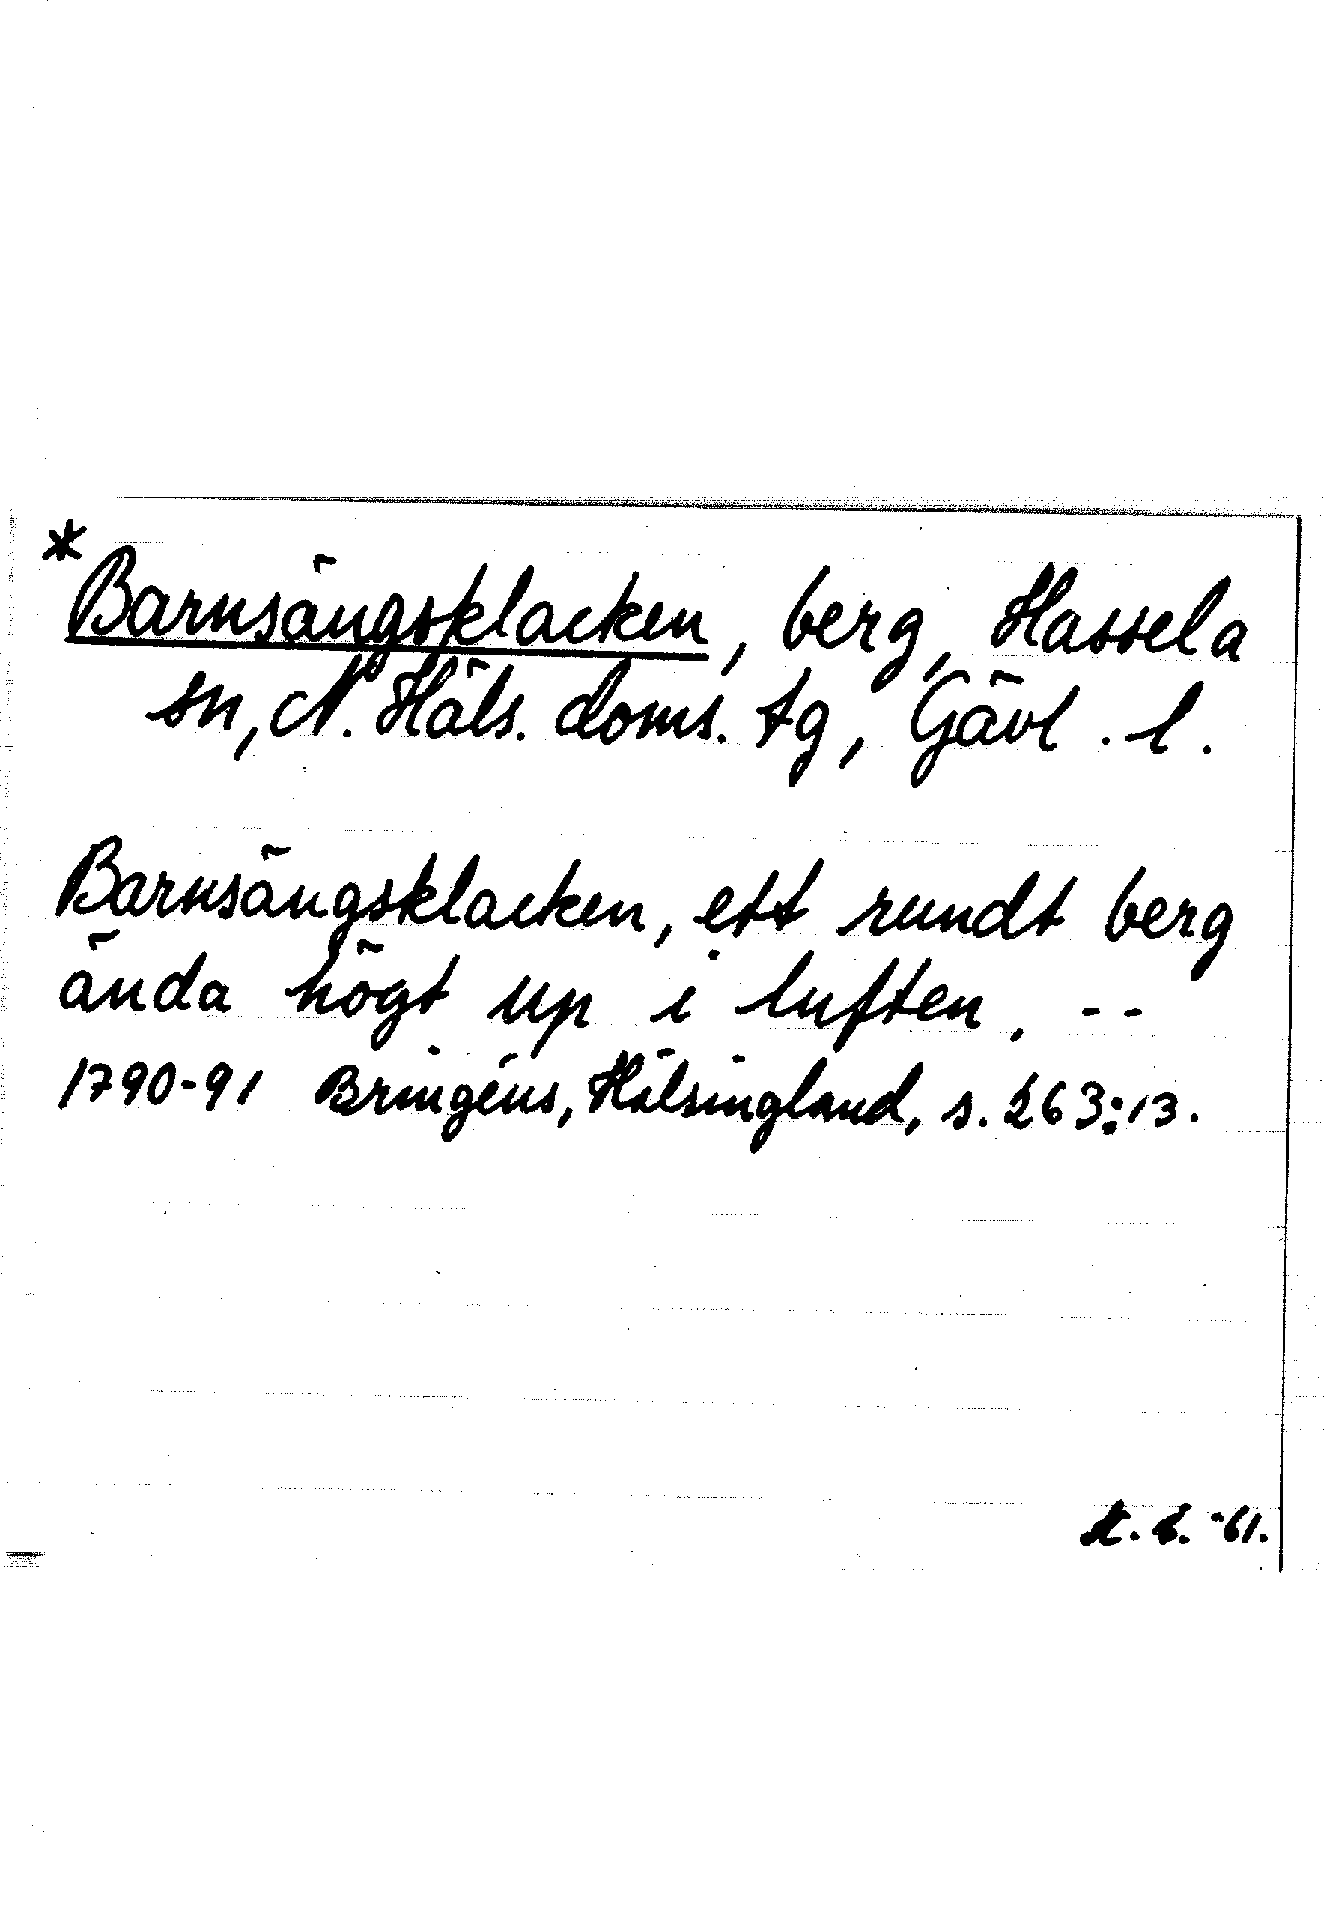 *Barnsängsklacken, berg, Hassela
sn, N. Häls. doms. tg, Gävl. l.
Barnsängsklacken, ett rundt berg
ända högt up i luften, --
1790-91 Bringéus, Hälsingland, s. 263:13.
-61.